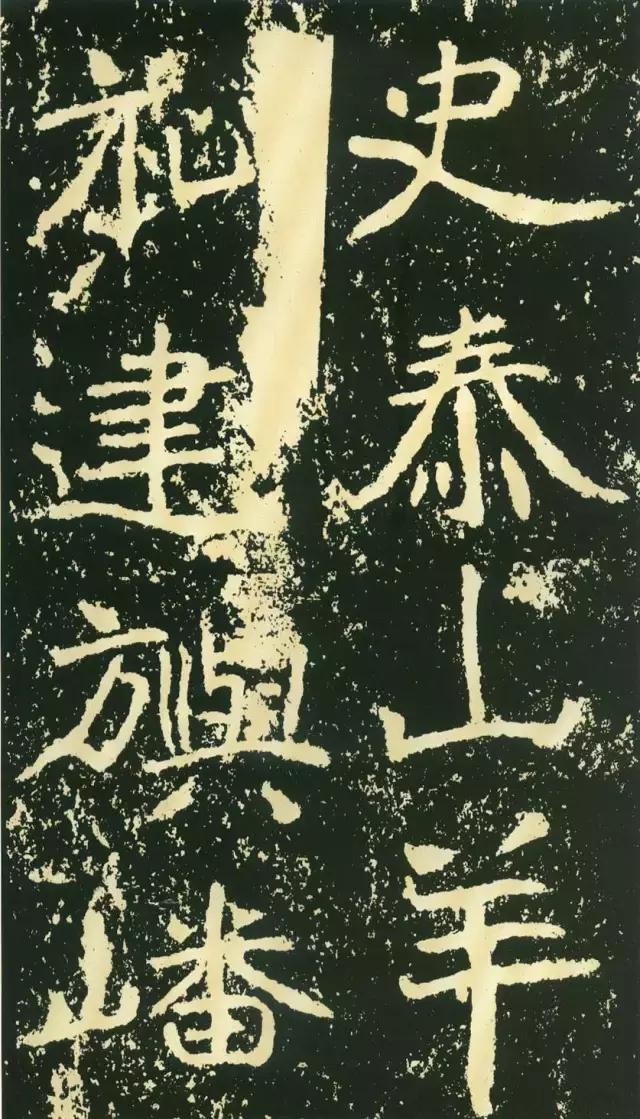 史泰山羊
祉建旟嶓